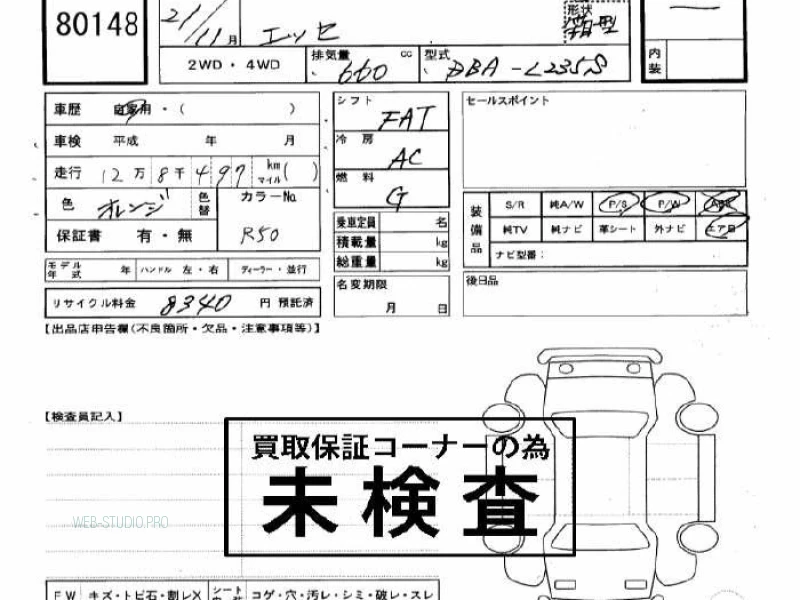 80148
21/11月
エッセ
形状
箱型
2WD・4WD
排気量 660 cc
型式 DBA-L235S
内装
車歴 自家用・( )
シフト FAT
セールスポイント
車検 平成 年 月
冷房 AC
走行 12万8千497 km マイル( )
燃料 G
色 オレンジ 色替
カラーNo. R50
装備品 S/R 純A/W P/S P/W ABS
純TV 純ナビ 革シート 外ナビ エアB
ナビ型番:
保証書 有・無
乗車定員 名
積載量 kg
総重量 kg
モデル年式 年 ハンドル 左・右 ディーラー・並行
名変期限 月 日
後日品
リサイクル料金 8340 円 預託済
【出品店申告欄(不良箇所・欠品・注意事項等)】
【検査員記入】
買取保証コーナーの為
未検査
WEB-STUDIO.PRO
FW キズ・トビ石・割レX シート コゲ・穴・汚レ・シミ・破レ・スレ